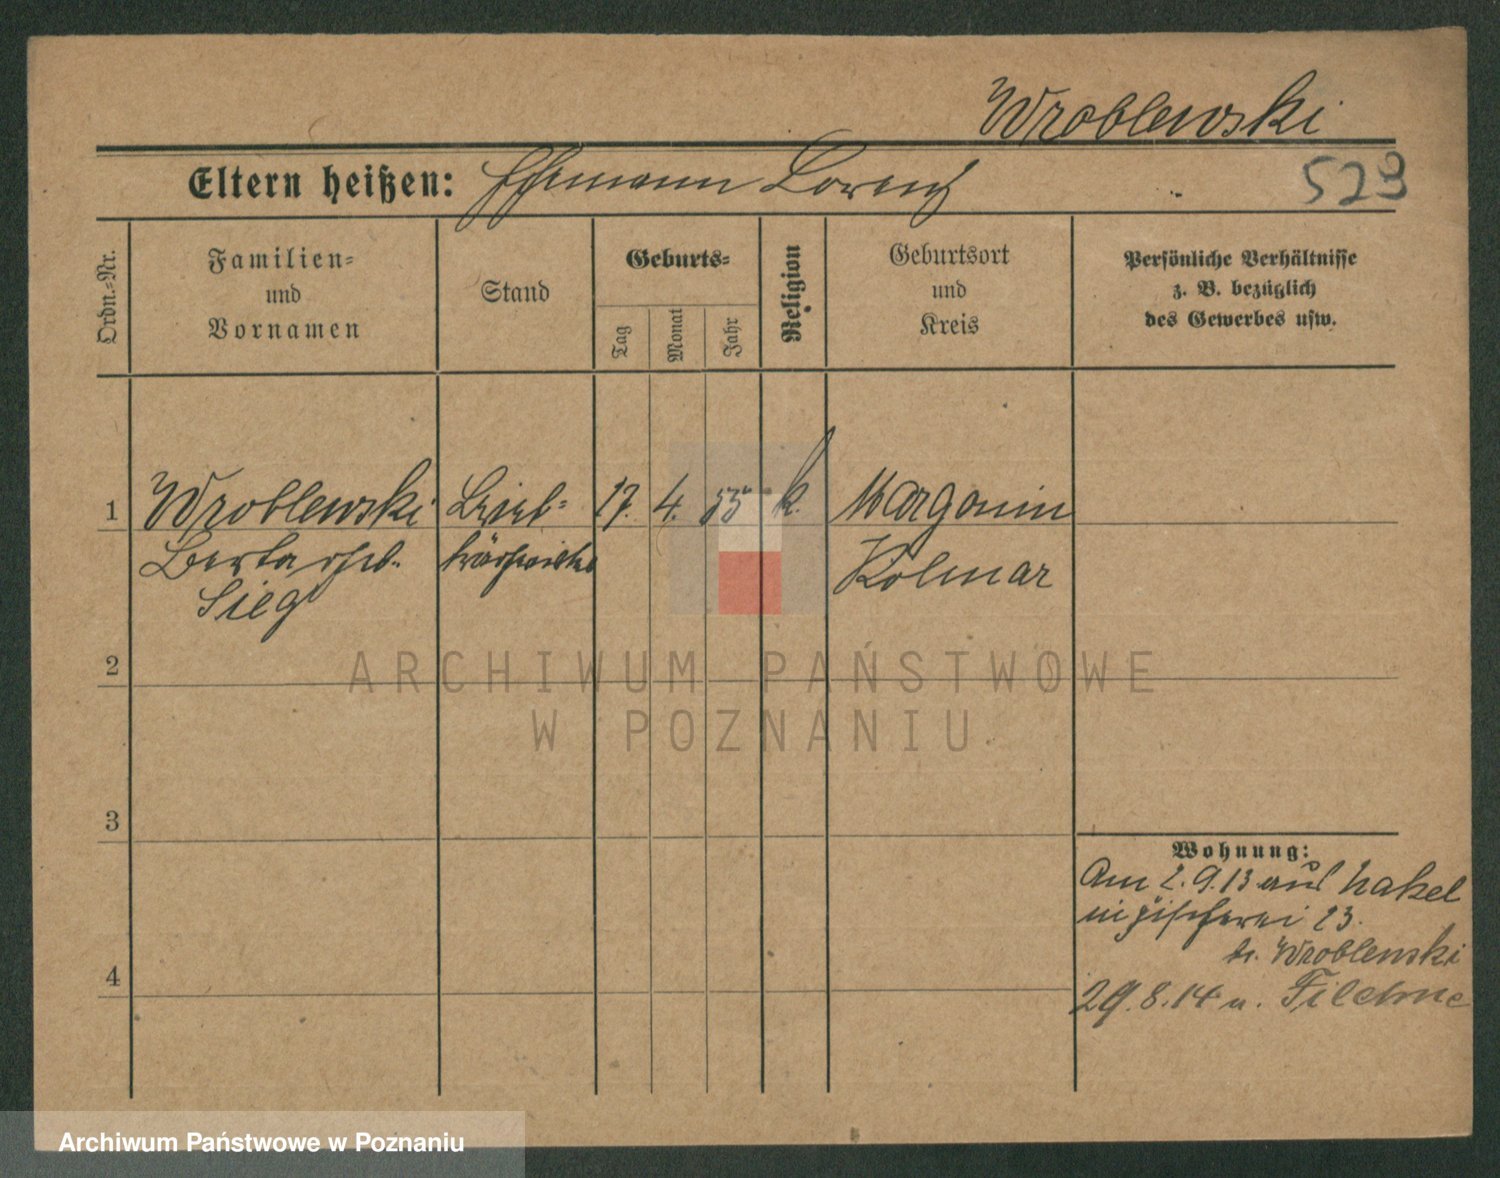 Wroblewski
Eltern heißen: Ehemann Lorenz
523
Ordn.-Nr.
Familien-
und
Vornamen
Stand
Geburts-
Tag
Monat
Jahr
Religion
Geburtsort
und
Kreis
Persönliche Verhältnisse
z. B. bezüglich
des Gewerbes usw.
1
Wroblewski
Berta geb.
Sieg
17. 4. 55 k.
Margonin
Kolmar
2
ARCHIWUM PAŃSTWOWE
W POZNANIU
3
4
Wohnung:
Am 2.9.13 aus Nakel
in Fischerei 23.
b. Wroblewski
29.8.14 n. Filehne
Archiwum Państwowe w Poznaniu